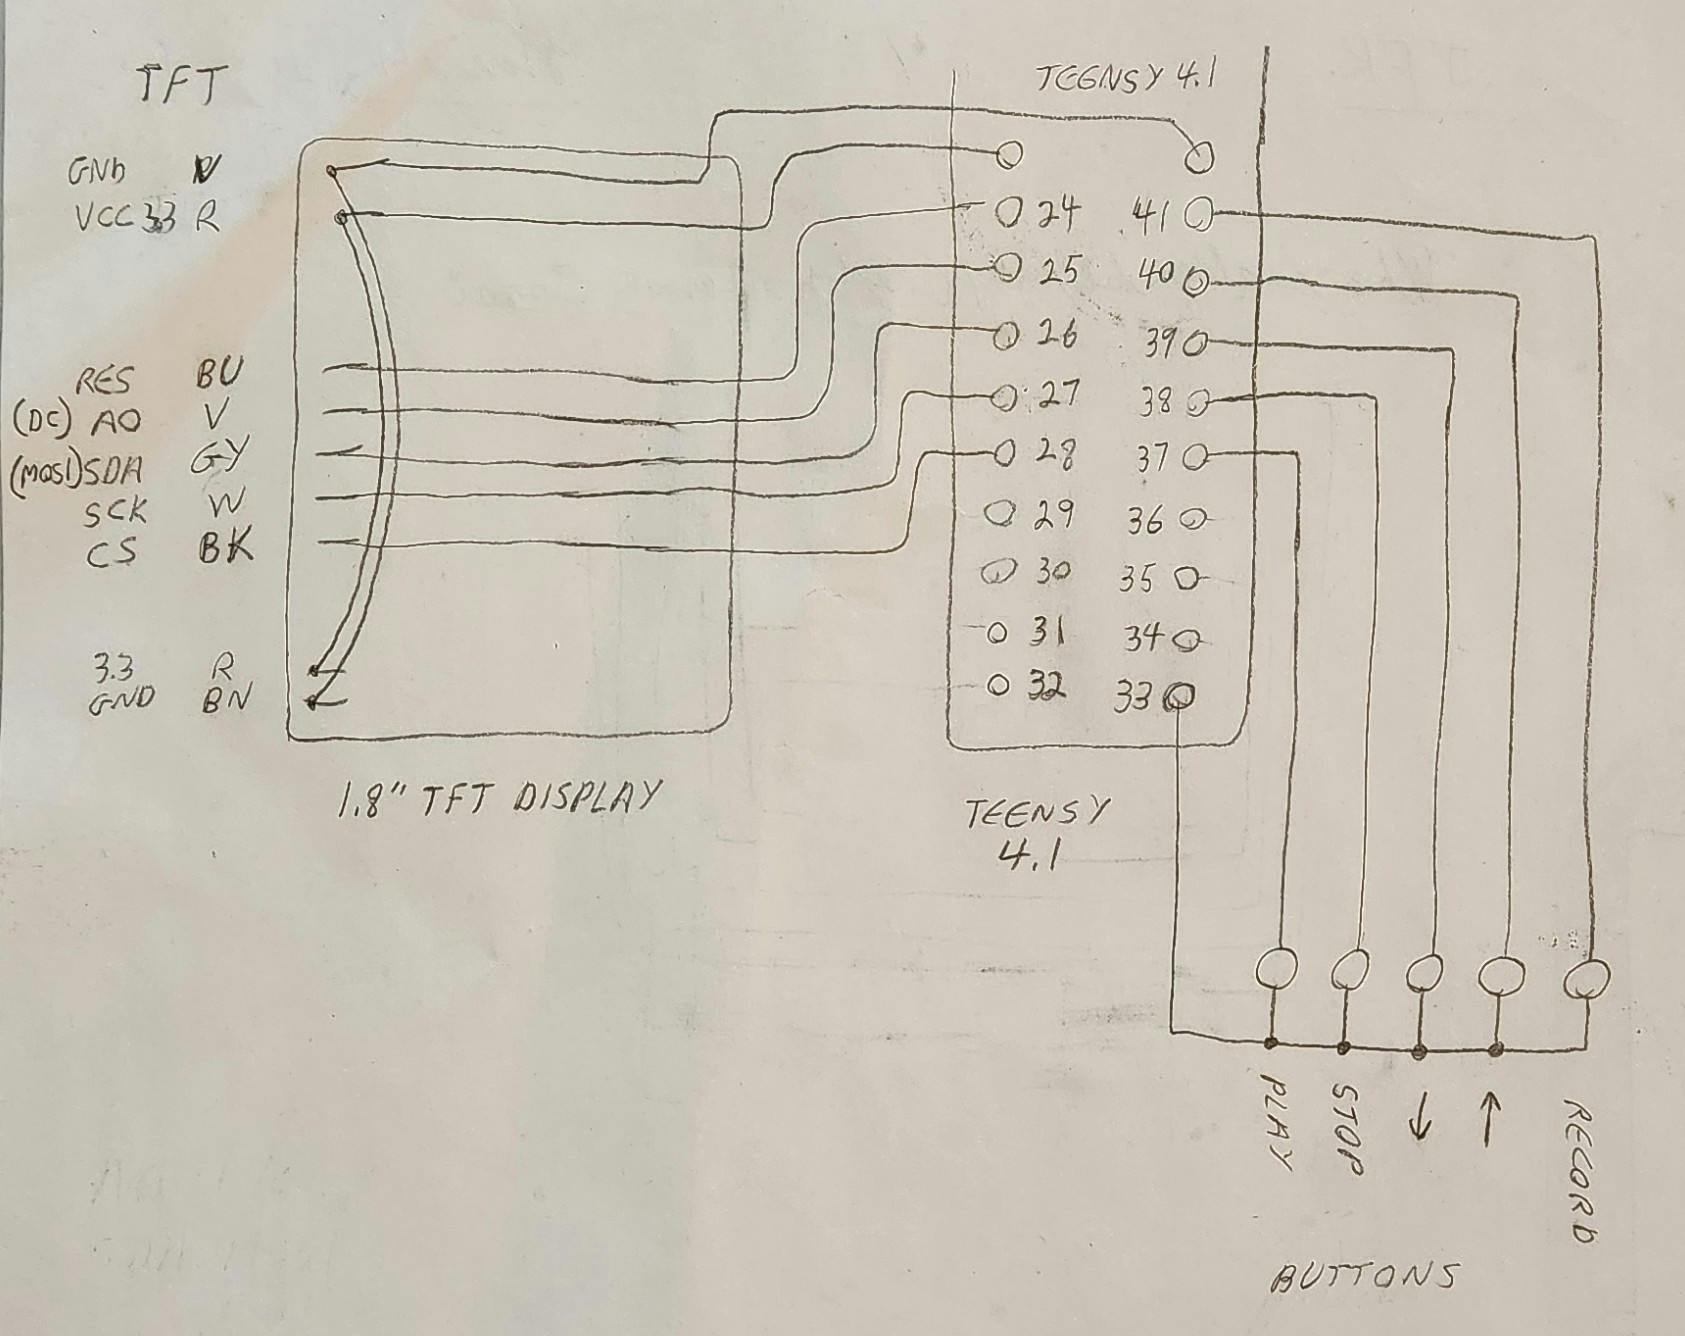 TFT
TEENSY 4.1
GND
VCC 3.3 R
24 41
25 40
26 39
27 38
28 37
29 36
30 35
31 34
32 33
RES BU
(DC) AO V
(MOSI) SDA GY
SCK W
CS BK
3.3 R
GND BN
1.8" TFT DISPLAY
TEENSY
4.1
PLAY
STOP
↓
↑
RECORD
BUTTONS